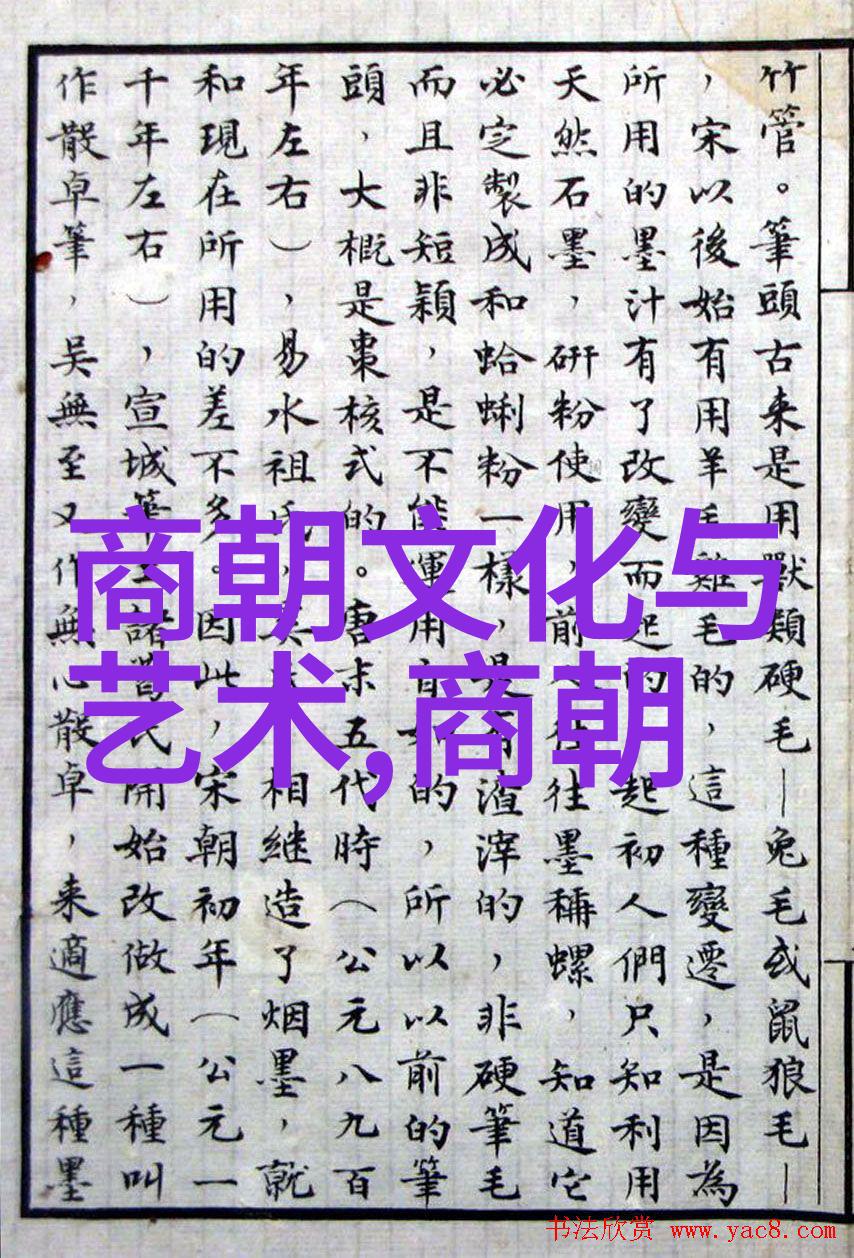 竹管。筆頭古来是用獸類硬毛—兔毛或鼠狼毛—
，宋以後始有用羊毛雞毛的，這種變遷，是因為
所用的墨汁有了改變而起的起初人們只知利用
天然石墨，研粉使用，前往往墨稱螺，知道它
必定製成和蛤蜊粉一樣，是有渣滓的，非硬筆毛
而且非短穎，是不能運用自如的，所以以前的筆
頭，大概是棗核式的。唐末五代時（公元八九百
年左右），易水祖氏相继造了烟墨，就
和現在所用的差不多。因此，宋朝初年（公元一
千年左右），宣城筆工諸葛氏開始改做成一種叫
作散卓筆，吴無至又作無心散卓，来適應這種墨
商朝文化与
艺术,商朝
书法欣赏 www.yac8.com